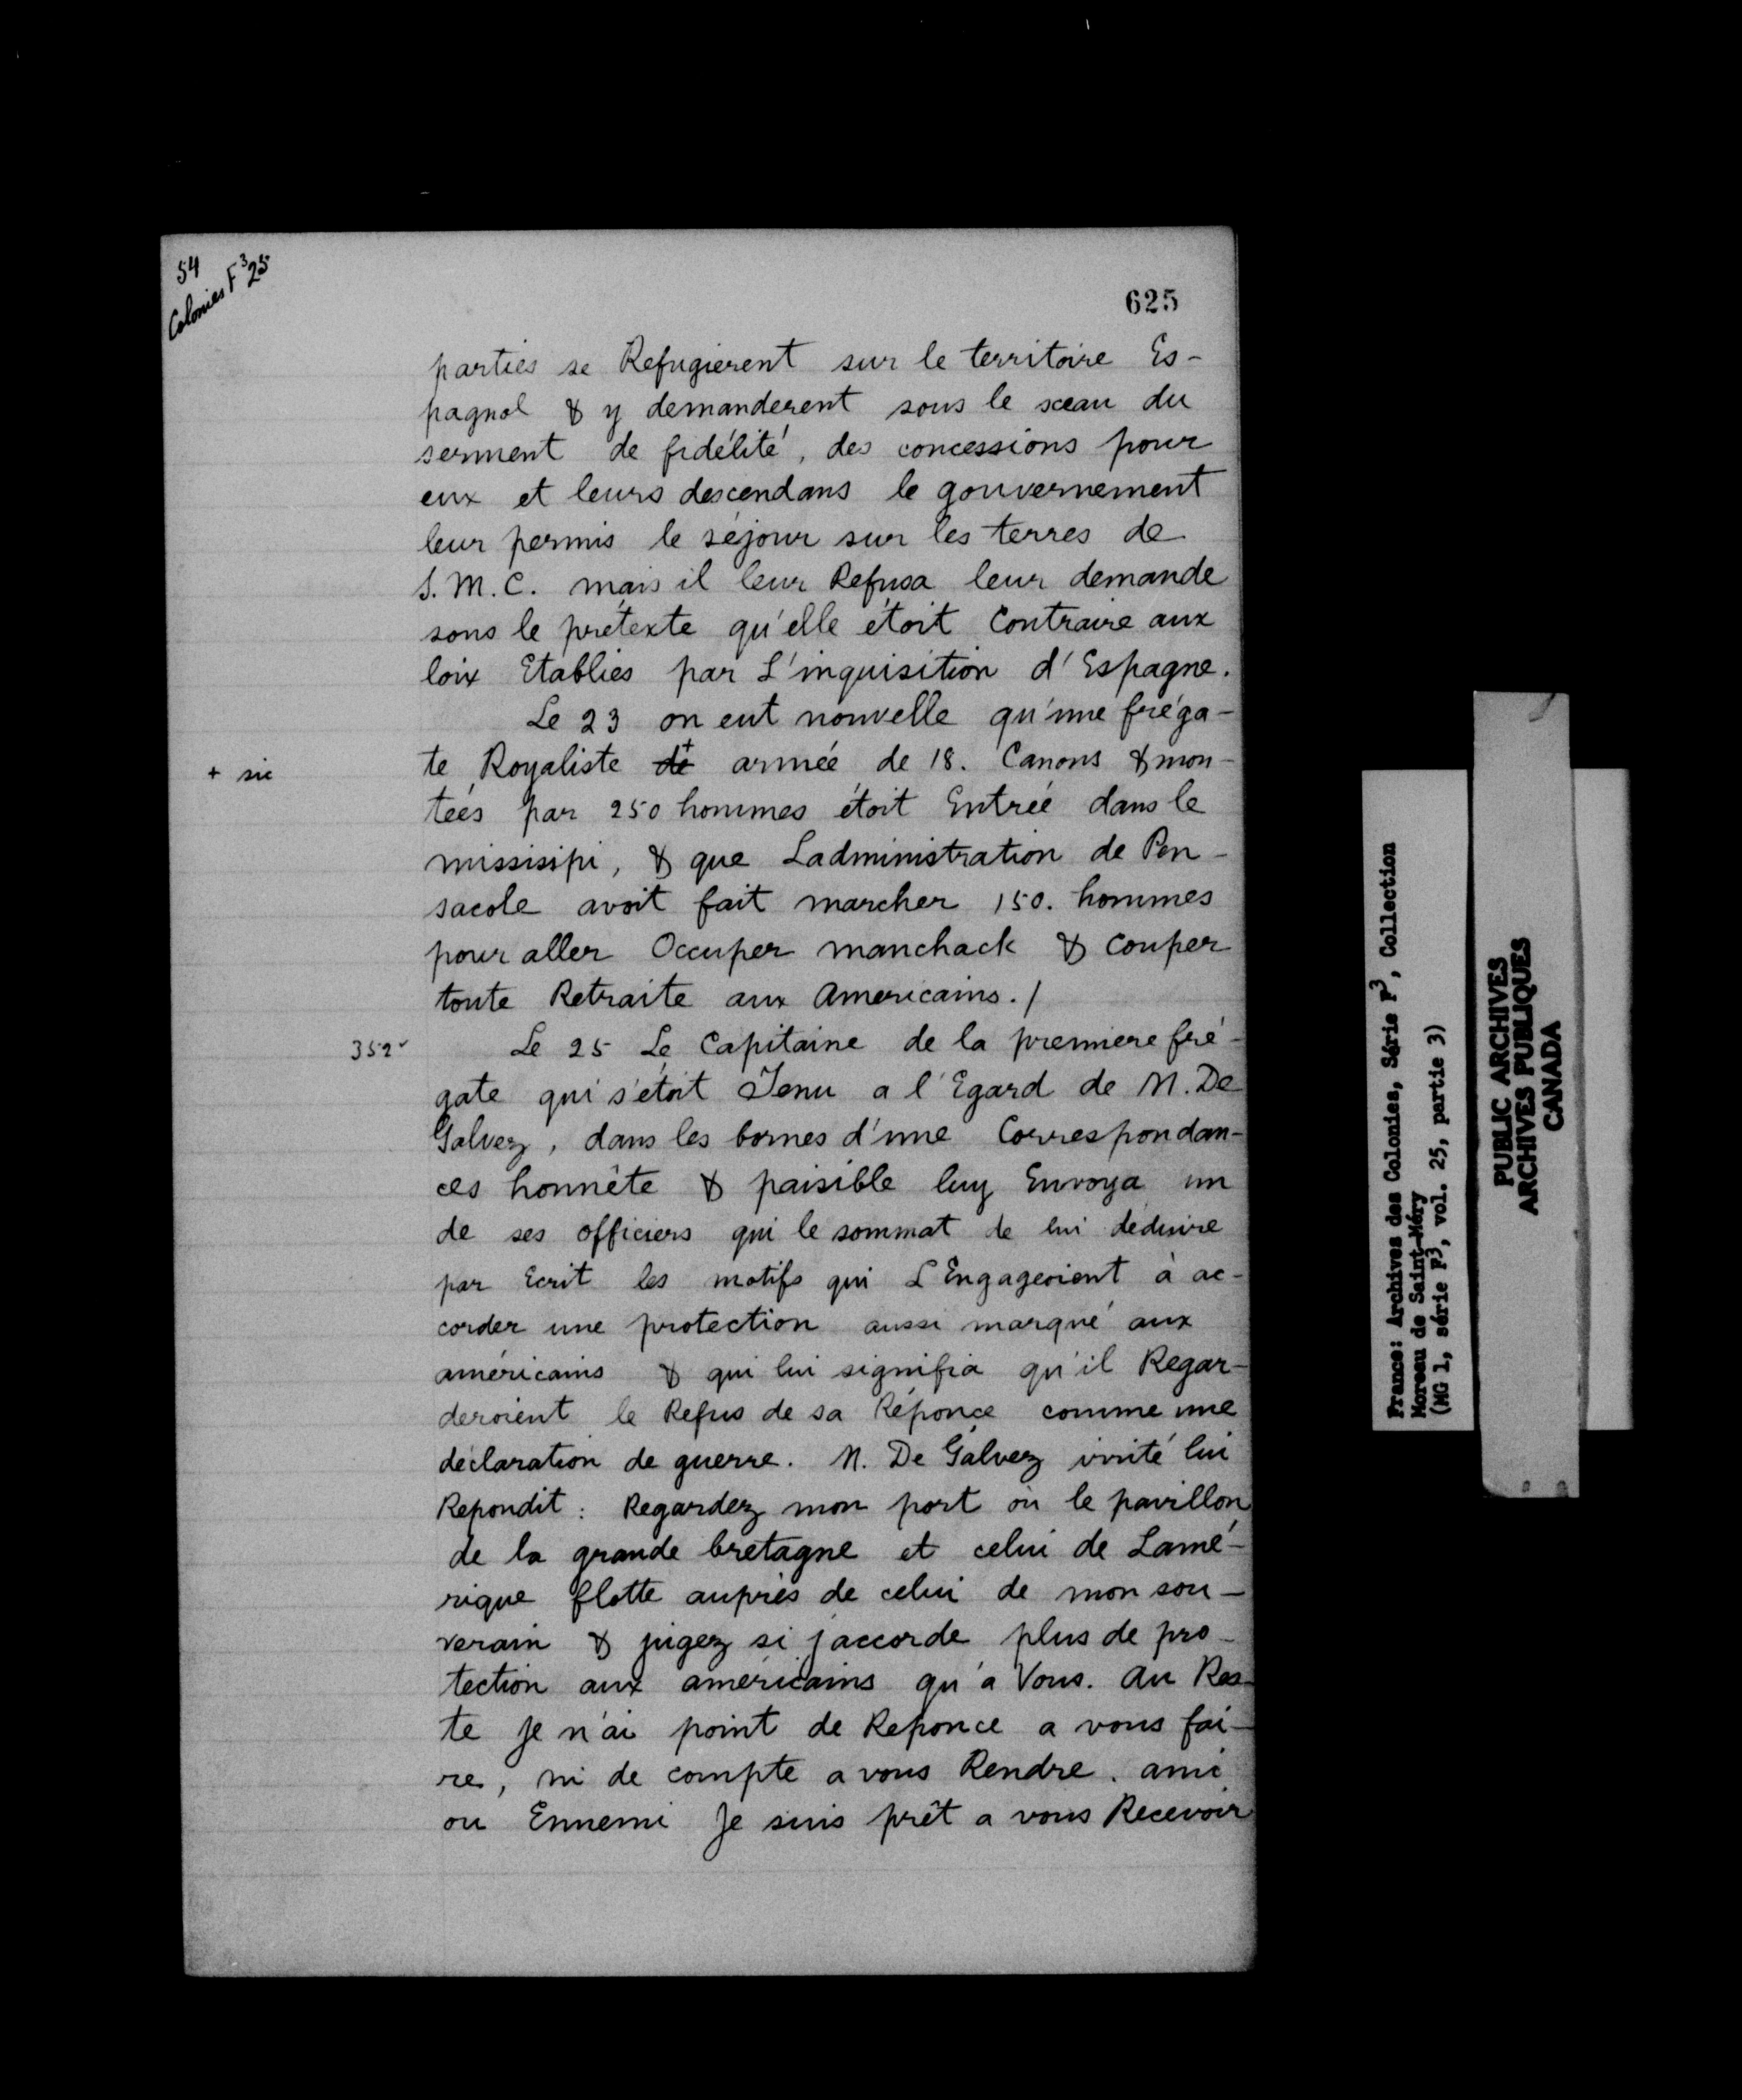 54
Colonies F³ 25
625
parties se Refugierent sur le territoire Es-
pagnol & y demanderent sous le sceau du
serment de fidélité, des concessions pour
eux et leurs descendans le gouvernement
leur permis le séjour sur les terres de
S. M. C. mais il leur Refusa leur demande
sous le prétexte qu'elle étoit Contraire aux
loix Etablies par L'inquisition d'Espagne.
Le 23 on eut nouvelle qu'une fréga-
+ sic
te Royaliste de+ armée de 18. Canons & mon-
tées par 250 hommes étoit Entrée dans le
missisipi, & que Ladministration de Pen-
sacole avoit fait marcher 150. hommes
pour aller Occuper manchack & couper
toute Retraite aux Americains. /
352v
Le 25 Le Capitaine de la premiere fré-
gate qui s'étoit Tenu a l'Egard de M. De
Galvez, dans les bornes d'une Correspondan-
ces honnête & paisible luy Envoya un
de ses officiers qui le sommat de lui déduire
par Ecrit les motifs qui L'Engageoient à ac-
corder une protection aussi marqué aux
américains & qui lui signifia qu'il Regar-
deroient le Refus de sa Réponce comme une
déclaration de guerre. M. De Galvez irrité lui
Repondit : Regardez mon port où le pavillon
de la grande bretagne et celui de Lamé-
rique flotte auprès de celui de mon sou-
verain & jugez si j'accorde plus de pro-
tection aux américains qu'a Vous. au Res-
te Je n'ai point de Reponce a vous fai-
re, ni de compte a vous Rendre. ami
ou Ennemi Je suis prêt a vous Recevoir
France: Archives des Colonies, Série F³, Collection
Moreau de Saint-Méry
(MG 1, série F³, vol. 25, partie 3)
PUBLIC ARCHIVES
ARCHIVES PUBLIQUES
CANADA